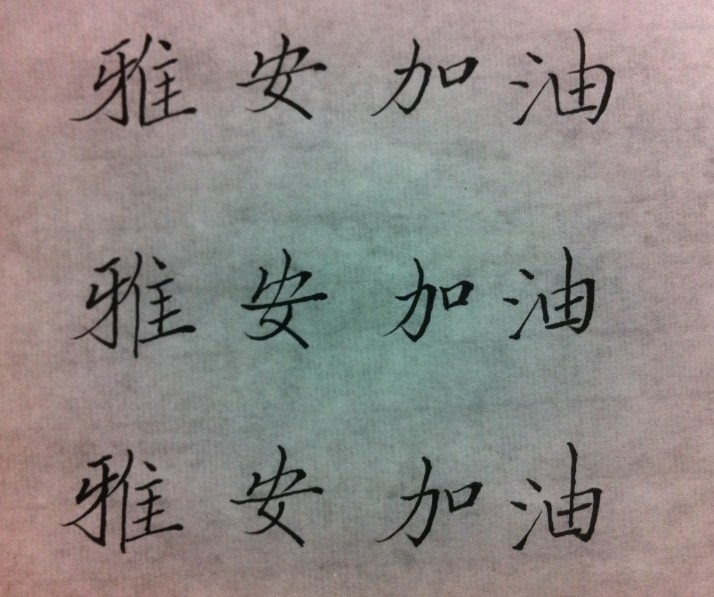 雅安加油
雅安加油
雅安加油